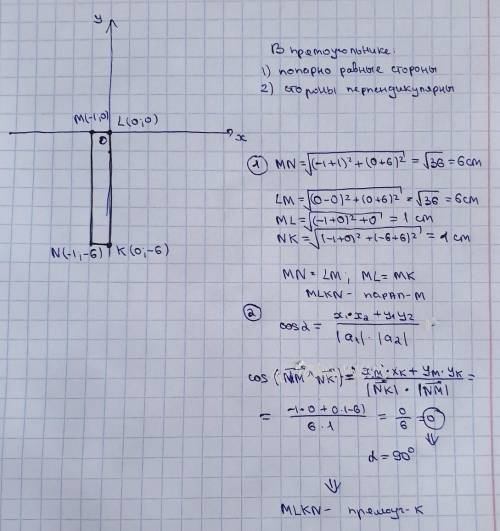 y
M(-1;0) L(0;0)
0
x
N(-1;-6) K(0;-6)
В прямоугольнике:
1) попарно равные стороны
2) стороны перпендикулярны
① MN = √(-1+1)² + (0+6)² = √36 = 6 cm
LM = √(0-0)² + (0+6)² = √36 = 6 cm
ML = √(-1+0)² + 0 = 1 cm
NK = √(-1+0)² + (-6+6)² = 1 cm
MN = LM, ML = MK
MLKN - парал-м
② cos α = (x₁•x₂ + y₁y₂) / (|a₁| · |a₂|)
cos (NM ^ NK) = (xM · xK + yM · yK) / (|NK| · |NM|) =
= (-1·0 + 0·(-6)) / (6·1) = 0/6 = 0
⇓
α = 90°
⇓
MLKN - прямоуг-к